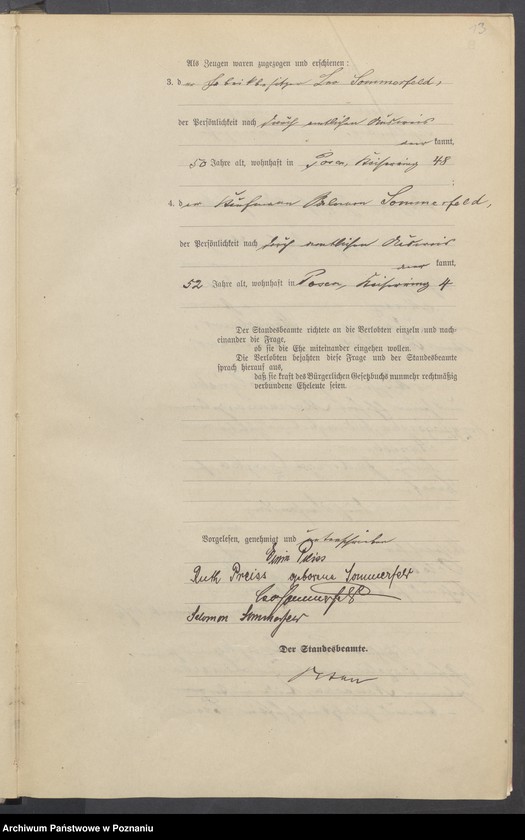 13
Als Zeugen waren zugezogen und erschienen:
3. der Fabrikbesitzer Leo Sommerfeld,
der Persönlichkeit nach durch amtlichen Ausweis
kannt,
50 Jahre alt, wohnhaft in Posen, Kaiserring 48
;
4. der Kaufmann Salomon Sommerfeld,
der Persönlichkeit nach durch amtlichen Ausweis
kannt,
52 Jahre alt, wohnhaft in Posen, Kaiserring 4
Der Standesbeamte richtete an die Verlobten einzeln und nach-
einander die Frage,
ob sie die Ehe miteinander eingehen wollen.
Die Verlobten bejahten diese Frage und der Standesbeamte
sprach hierauf aus,
daß sie kraft des Bürgerlichen Gesetzbuchs nunmehr rechtmäßig
verbundene Eheleute seien.
Vorgelesen, genehmigt und unterschrieben
Preiss
Ruth Preiss geborene Sommerfeld
Leo Sommerfeld
Salomon Sommerfeld
Der Standesbeamte.
Archiwum Państwowe w Poznaniu